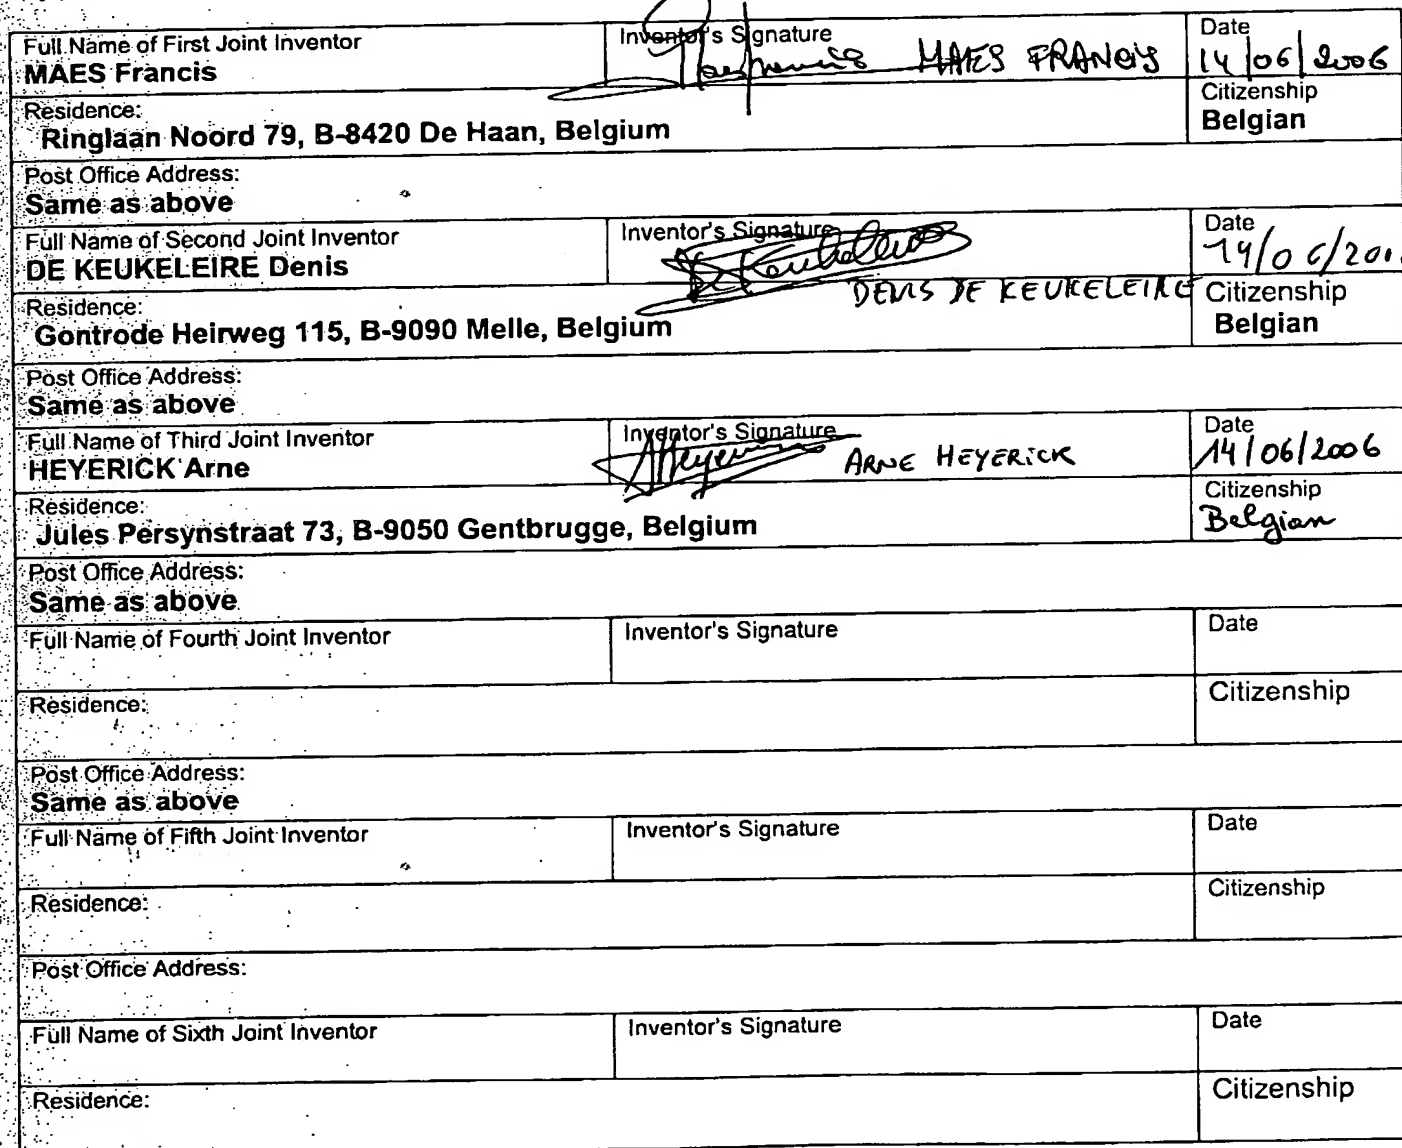 Full Name of First Joint Inventor
MAES Francis
Inventor's Signature
MAES FRANCIS
Date
14/06/2006
Residence:
Ringlaan Noord 79, B-8420 De Haan, Belgium
Citizenship
Belgian
Post Office Address:
Same as above
Full Name of Second Joint Inventor
DE KEUKELEIRE Denis
Inventor's Signature
DENIS DE KEUKELEIRE
Date
14/06/200
Residence:
Gontrode Heirweg 115, B-9090 Melle, Belgium
Citizenship
Belgian
Post Office Address:
Same as above
Full Name of Third Joint Inventor
HEYERICK Arne
Inventor's Signature
ARNE HEYERICK
Date
14/06/2006
Residence:
Jules Persynstraat 73, B-9050 Gentbrugge, Belgium
Citizenship
Belgian
Post Office Address:
Same as above
Full Name of Fourth Joint Inventor
Inventor's Signature
Date
Residence:
Citizenship
Post Office Address:
Same as above
Full Name of Fifth Joint Inventor
Inventor's Signature
Date
Residence:
Citizenship
Post Office Address:
Full Name of Sixth Joint Inventor
Inventor's Signature
Date
Residence:
Citizenship